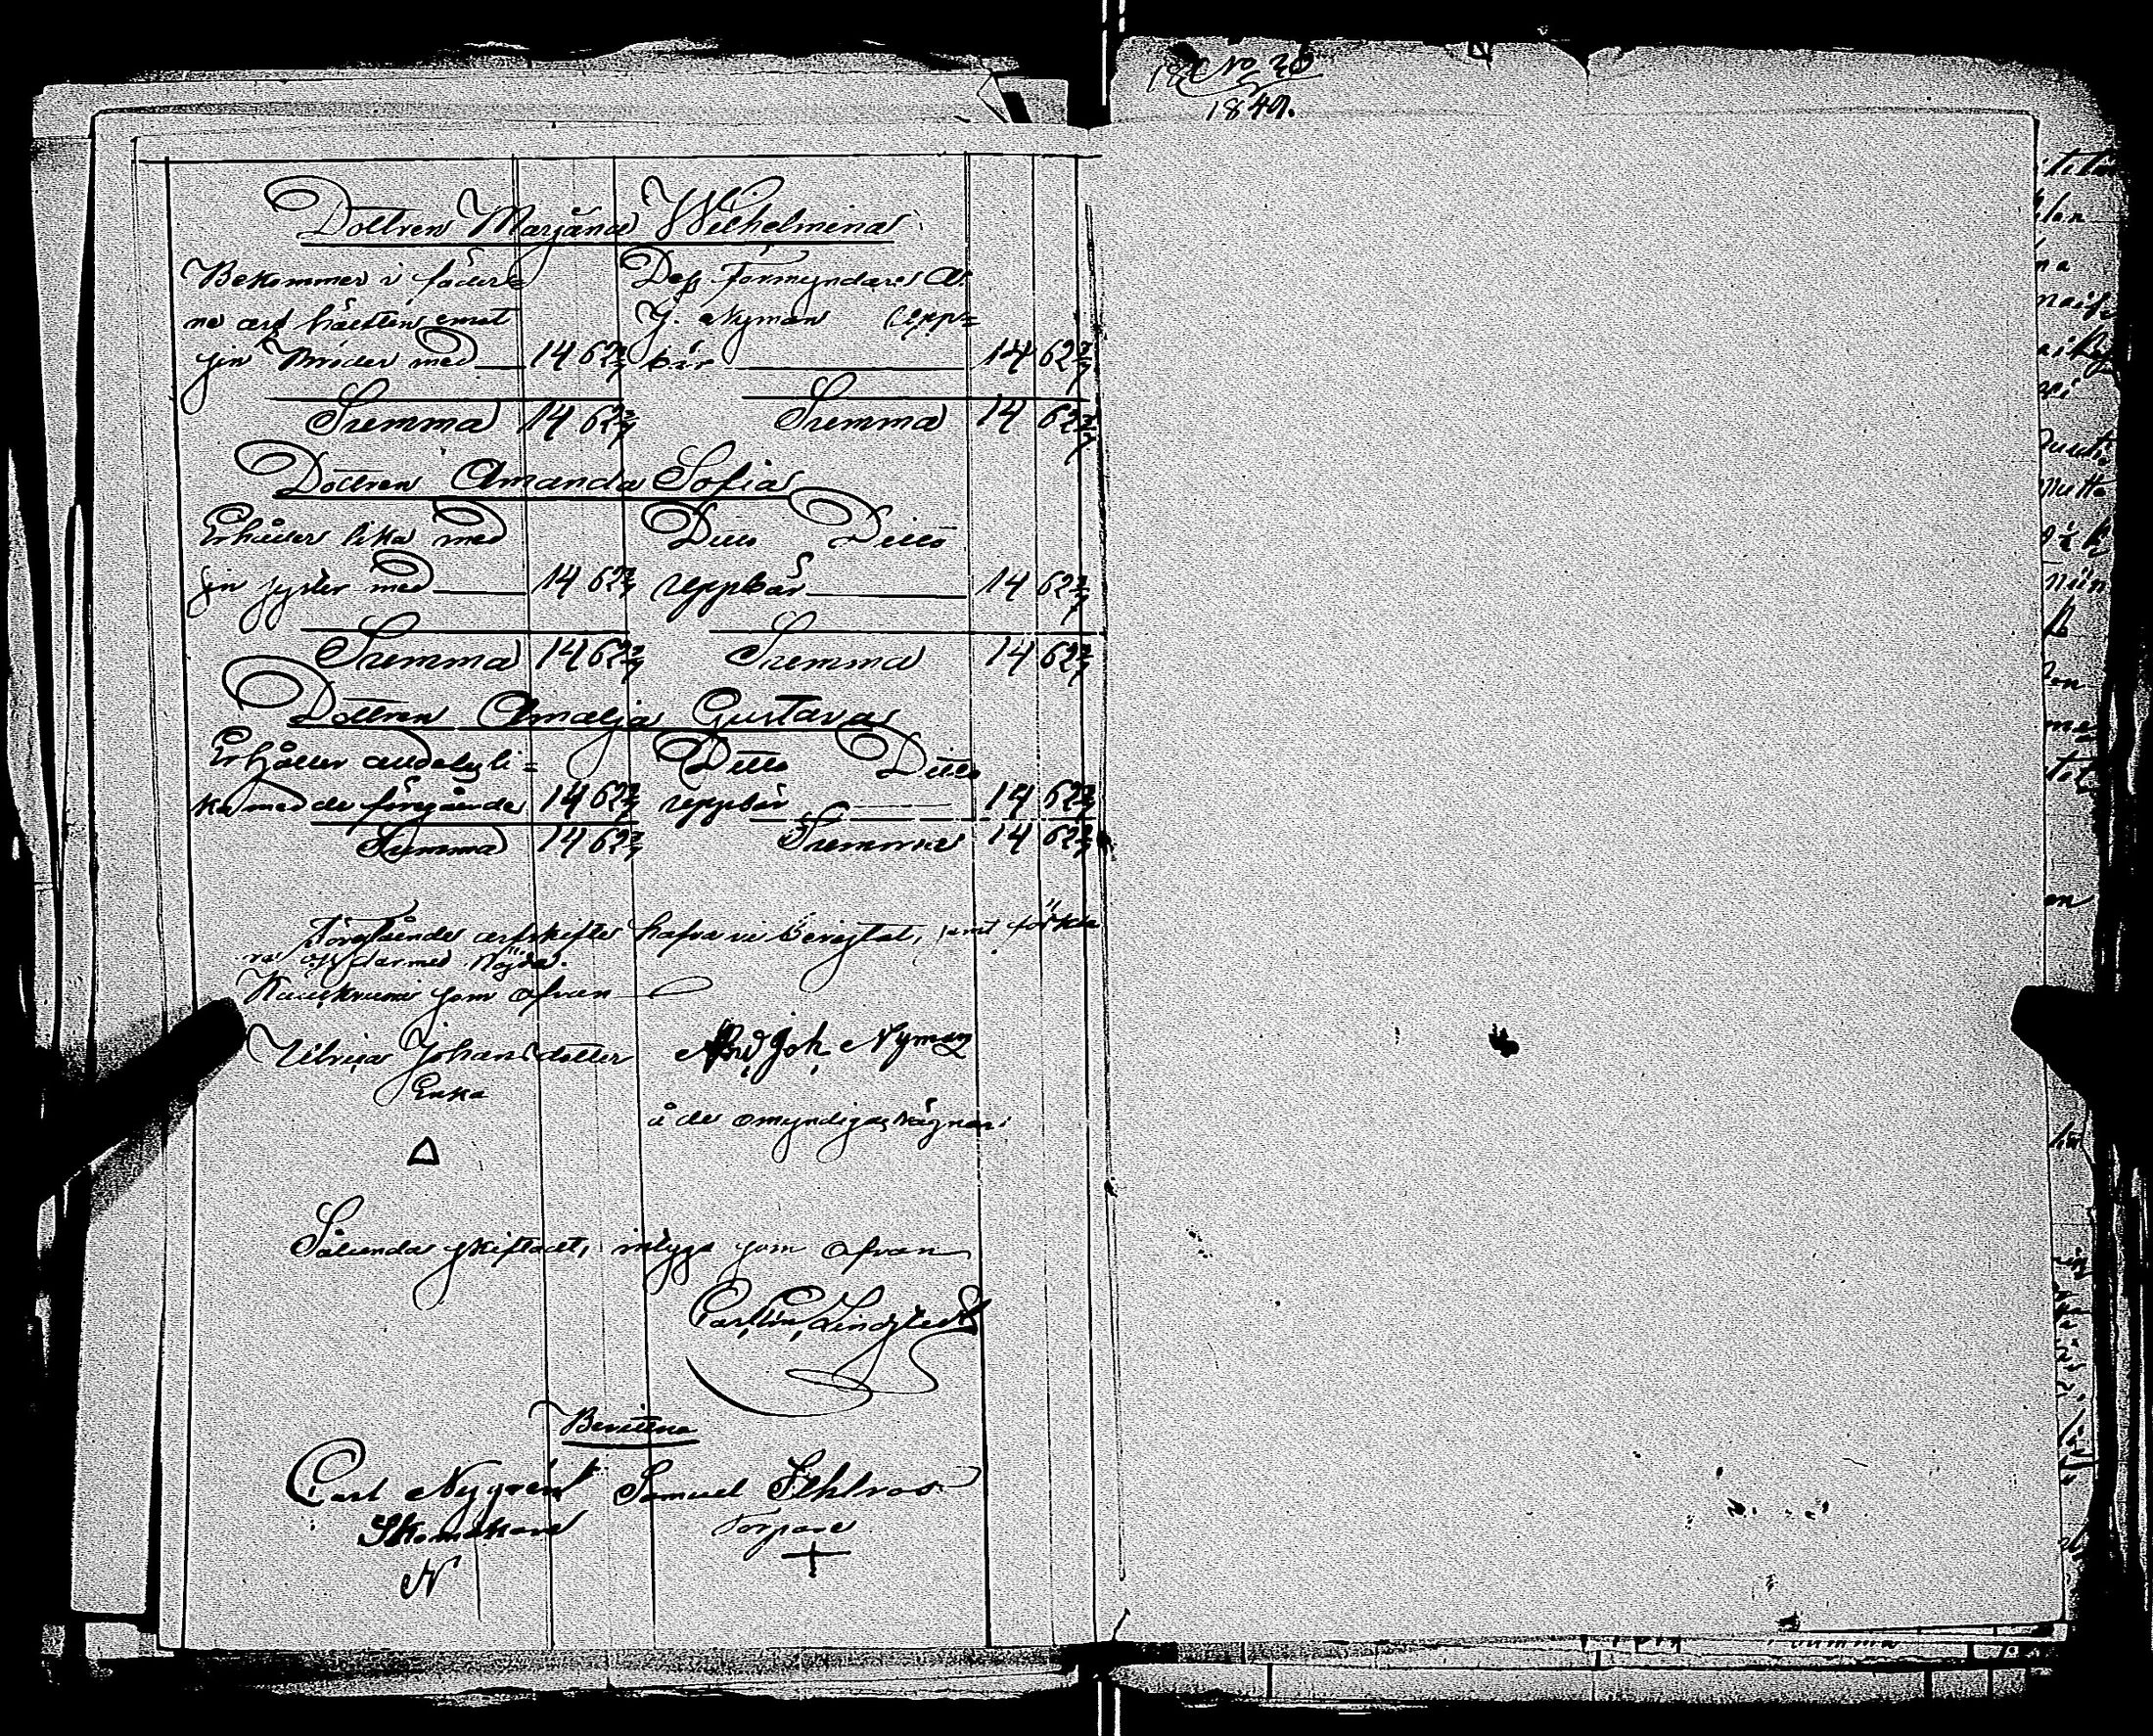 No 20
1849.
Dottren Marjana Wilhelmina
Bekommer i föder= Dess Förmyndare A.
ne arf hälften emot J. Nyman upp=
sin Moder med 14 62 2/7 bär 14 62 2/7
Summa 14 62 2/7 Summa 14 62 2/7
Dottren Amanda Sofia
Erhåller lika med Ditto Ditto
sin syster med 14 62 2/7 uppbär 14 62 2/7
Summa 14 62 2/7 Summa 14 62 2/7
Dottren Amalja Gustava
Erhåller alldeles li= Ditto Ditto
ka med de föregående 14 62 2/7 uppbär 14 62 2/7
Summa 14 62 2/7 Summa 14 62 2/7
Förestående arfskifte hafva vi bevistat, samt förkla
ra oss darmed Nöjda.
som ofvan
Ulrica Johansdotter And. Joh. Nyman
Enka
å de omyndigas vägnar.
Sålunda skiftadt, intyga som ofvan
Carl Lindstedt
Bevittna
Carl Nygrén Samuel
Skomakare Torpare
N